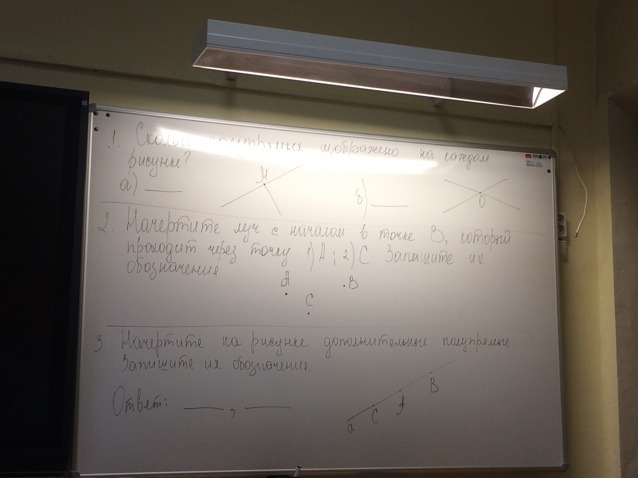 1. Сколько полупрямых изображено на каждом
рисунке?
а) ____ М б) ____ О
2. Начертите луч с началом в точке В, который
проходит через точку 1) А ; 2) С Запишите их
обозначения
А В
С
3. Начертите на рисунке дополнительные полупрямые
Запишите их обозначения
Ответ: ____ , ____
а С А В